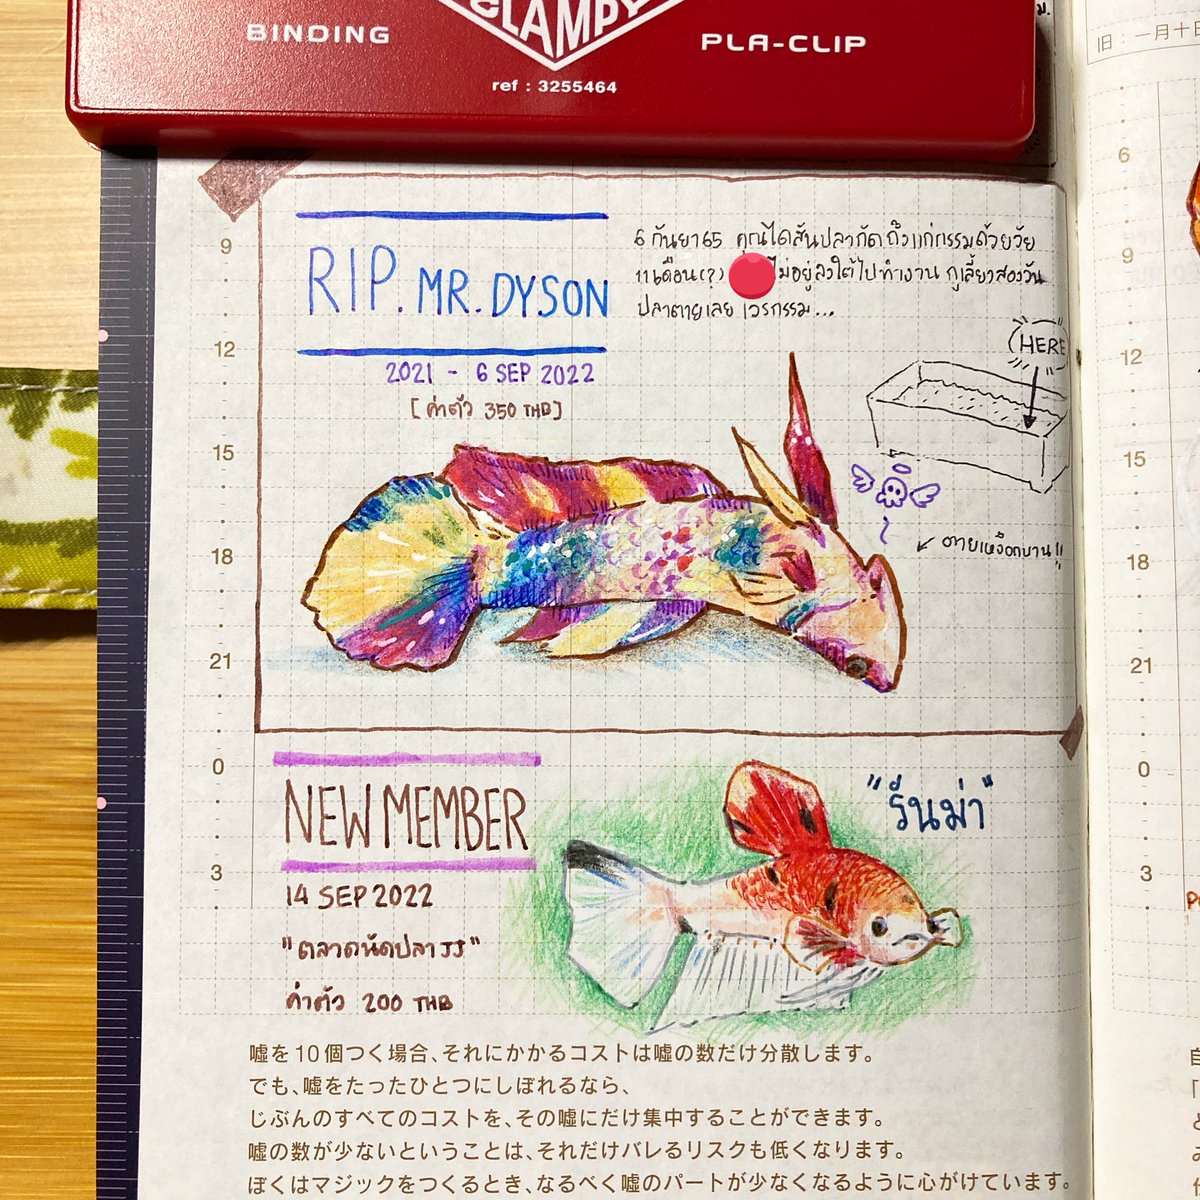 CLAMPY
BINDING
PLA-CLIP
ref : 3255464
旧：一月十日
6
9
12
15
18
21
0
3
9
12
15
18
21
0
3
RIP. MR. DYSON
2021 - 6 SEP 2022
[ค่าตัว 350 THB]
6 กันยา 65 คุณไดสันปลากัดถึงแก่กรรมด้วยวัย
11 เดือน(?) ไม่อยู่ลงใต้ไปทำงาน กูเลี้ยงสองวัน
ปลาตายเลย เวรกรรม...
HERE
ตายเหงือกบาน!!
NEW MEMBER
14 SEP 2022
"ตลาดนัดปลา JJ"
ค่าตัว 200 THB
"รันม่า"
嘘を10個つく場合、それにかかるコストは嘘の数だけ分散します。
でも、嘘をたったひとつにしぼれるなら、
じぶんのすべてのコストを、その嘘にだけ集中することができます。
嘘の数が少ないということは、それだけバレるリスクも低くなります。
ぼくはマジックをつくるとき、なるべく嘘のパートが少なくなるように心がけています。